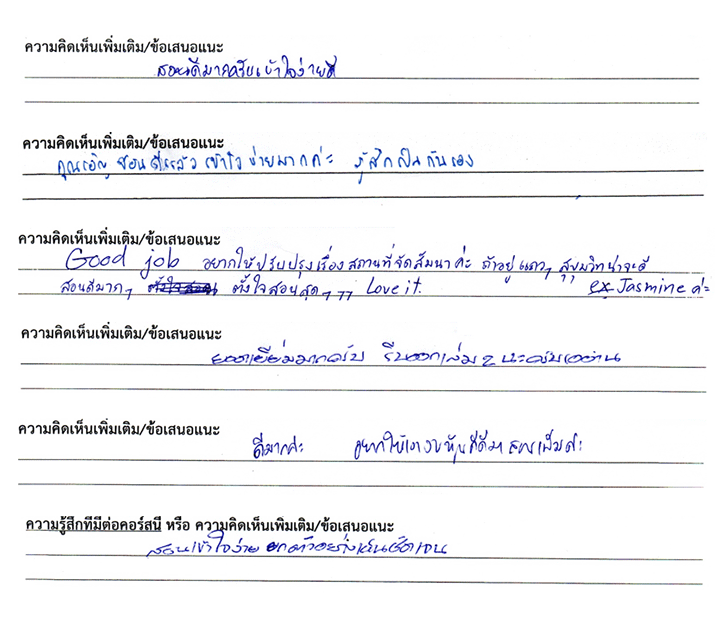 ความคิดเห็นเพิ่มเติม/ข้อเสนอแนะ
สอนดีมากครับเข้าใจง่ายดี
ความคิดเห็นเพิ่มเติม/ข้อเสนอแนะ
คุณ สอนดีแล้ว เข้าใจง่ายมากค่ะ รู้สึกเป็นกันเอง
ความคิดเห็นเพิ่มเติม/ข้อเสนอแนะ
Good job อยากให้ปรับปรุงเรื่องสถานที่จัดสัมนาค่ะ ถ้าอยู่แถวๆ สุขุมวิทน่าจะดี
สอนดีมากๆ ตั้งใจสอนสุดๆๆๆ Love it. ex Jasmine ค่ะ
ความคิดเห็นเพิ่มเติม/ข้อเสนอแนะ
ยอดเยี่ยมมากครับ รีบออกเล่ม 2 นะครับ
ความคิดเห็นเพิ่มเติม/ข้อเสนอแนะ
ดีมากค่ะ อยากให้เอา หุ้นที่ดีมา เพิ่มค่ะ
ความรู้สึกที่มีต่อคอร์สนี้ หรือ ความคิดเห็นเพิ่มเติม/ข้อเสนอแนะ
สอนเข้าใจง่าย ยกตัวอย่างเห็นชัดเจน